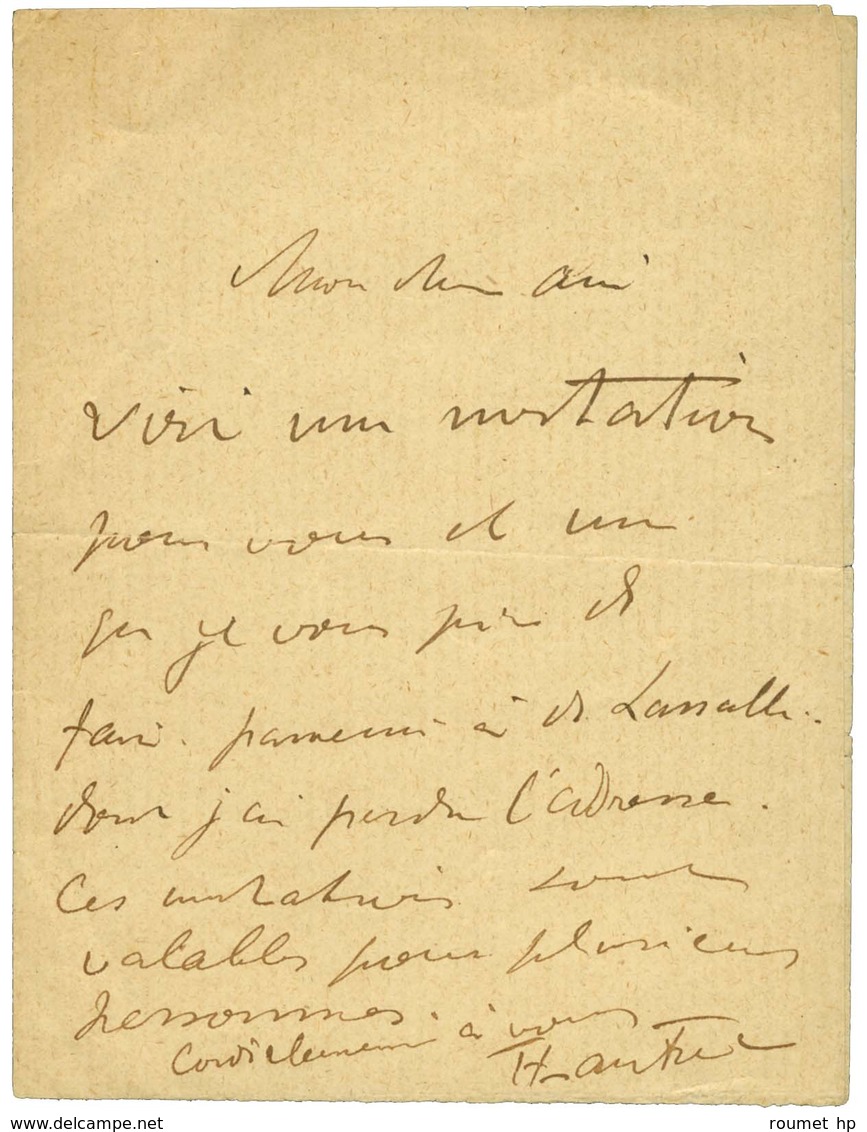 Mon cher ami
voici une invitation
pour vous et une
que je vous prie de
faire parvenir à de Lassalle.
dont j'ai perdu l'adresse.
Ces invitations sont
valables pour plusieurs
personnes.
Cordialement à vous
HLautrec
roumet hp